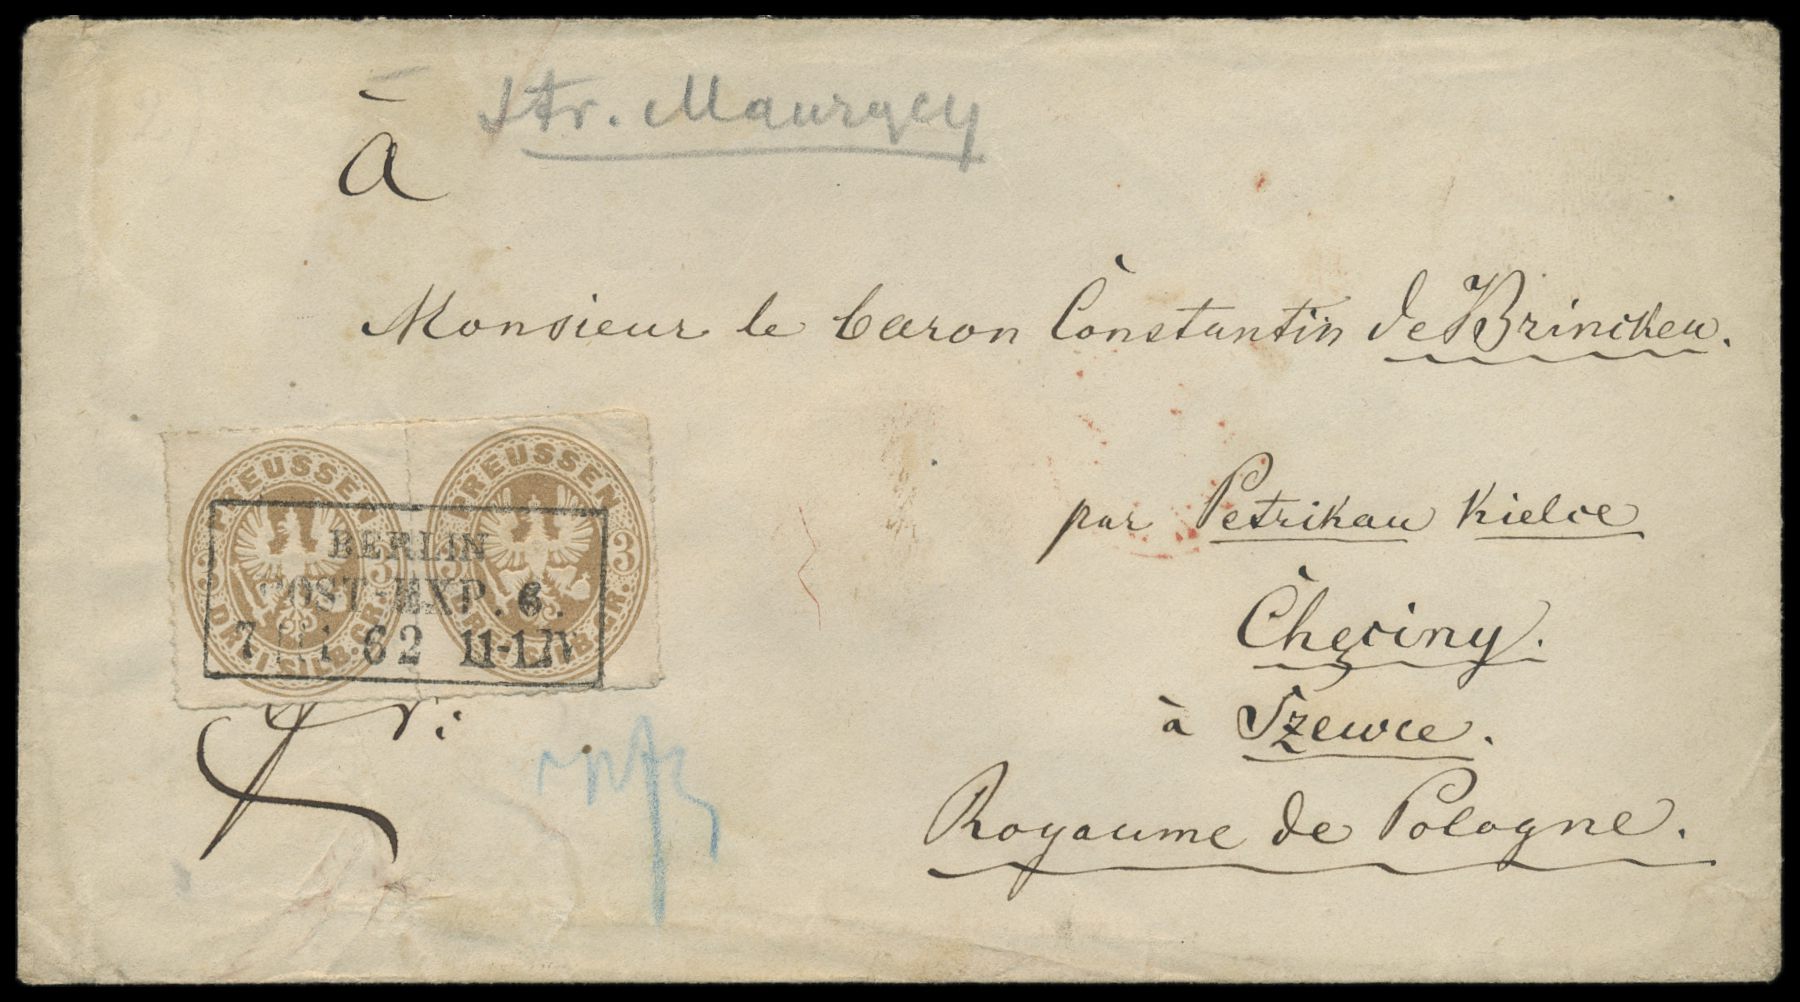 Str.
à
Monsieur le baron Constantin de Brincken.
par Petrikau Kielce
Chęciny.
à Szewce.
Royaume de Pologne.
PREUSSEN PREUSSEN
3 3 3
DREI SILB. GR. DREI SILB. GR.
BERLIN
POST-EXP. 6.
7 62 11-12N
fr: